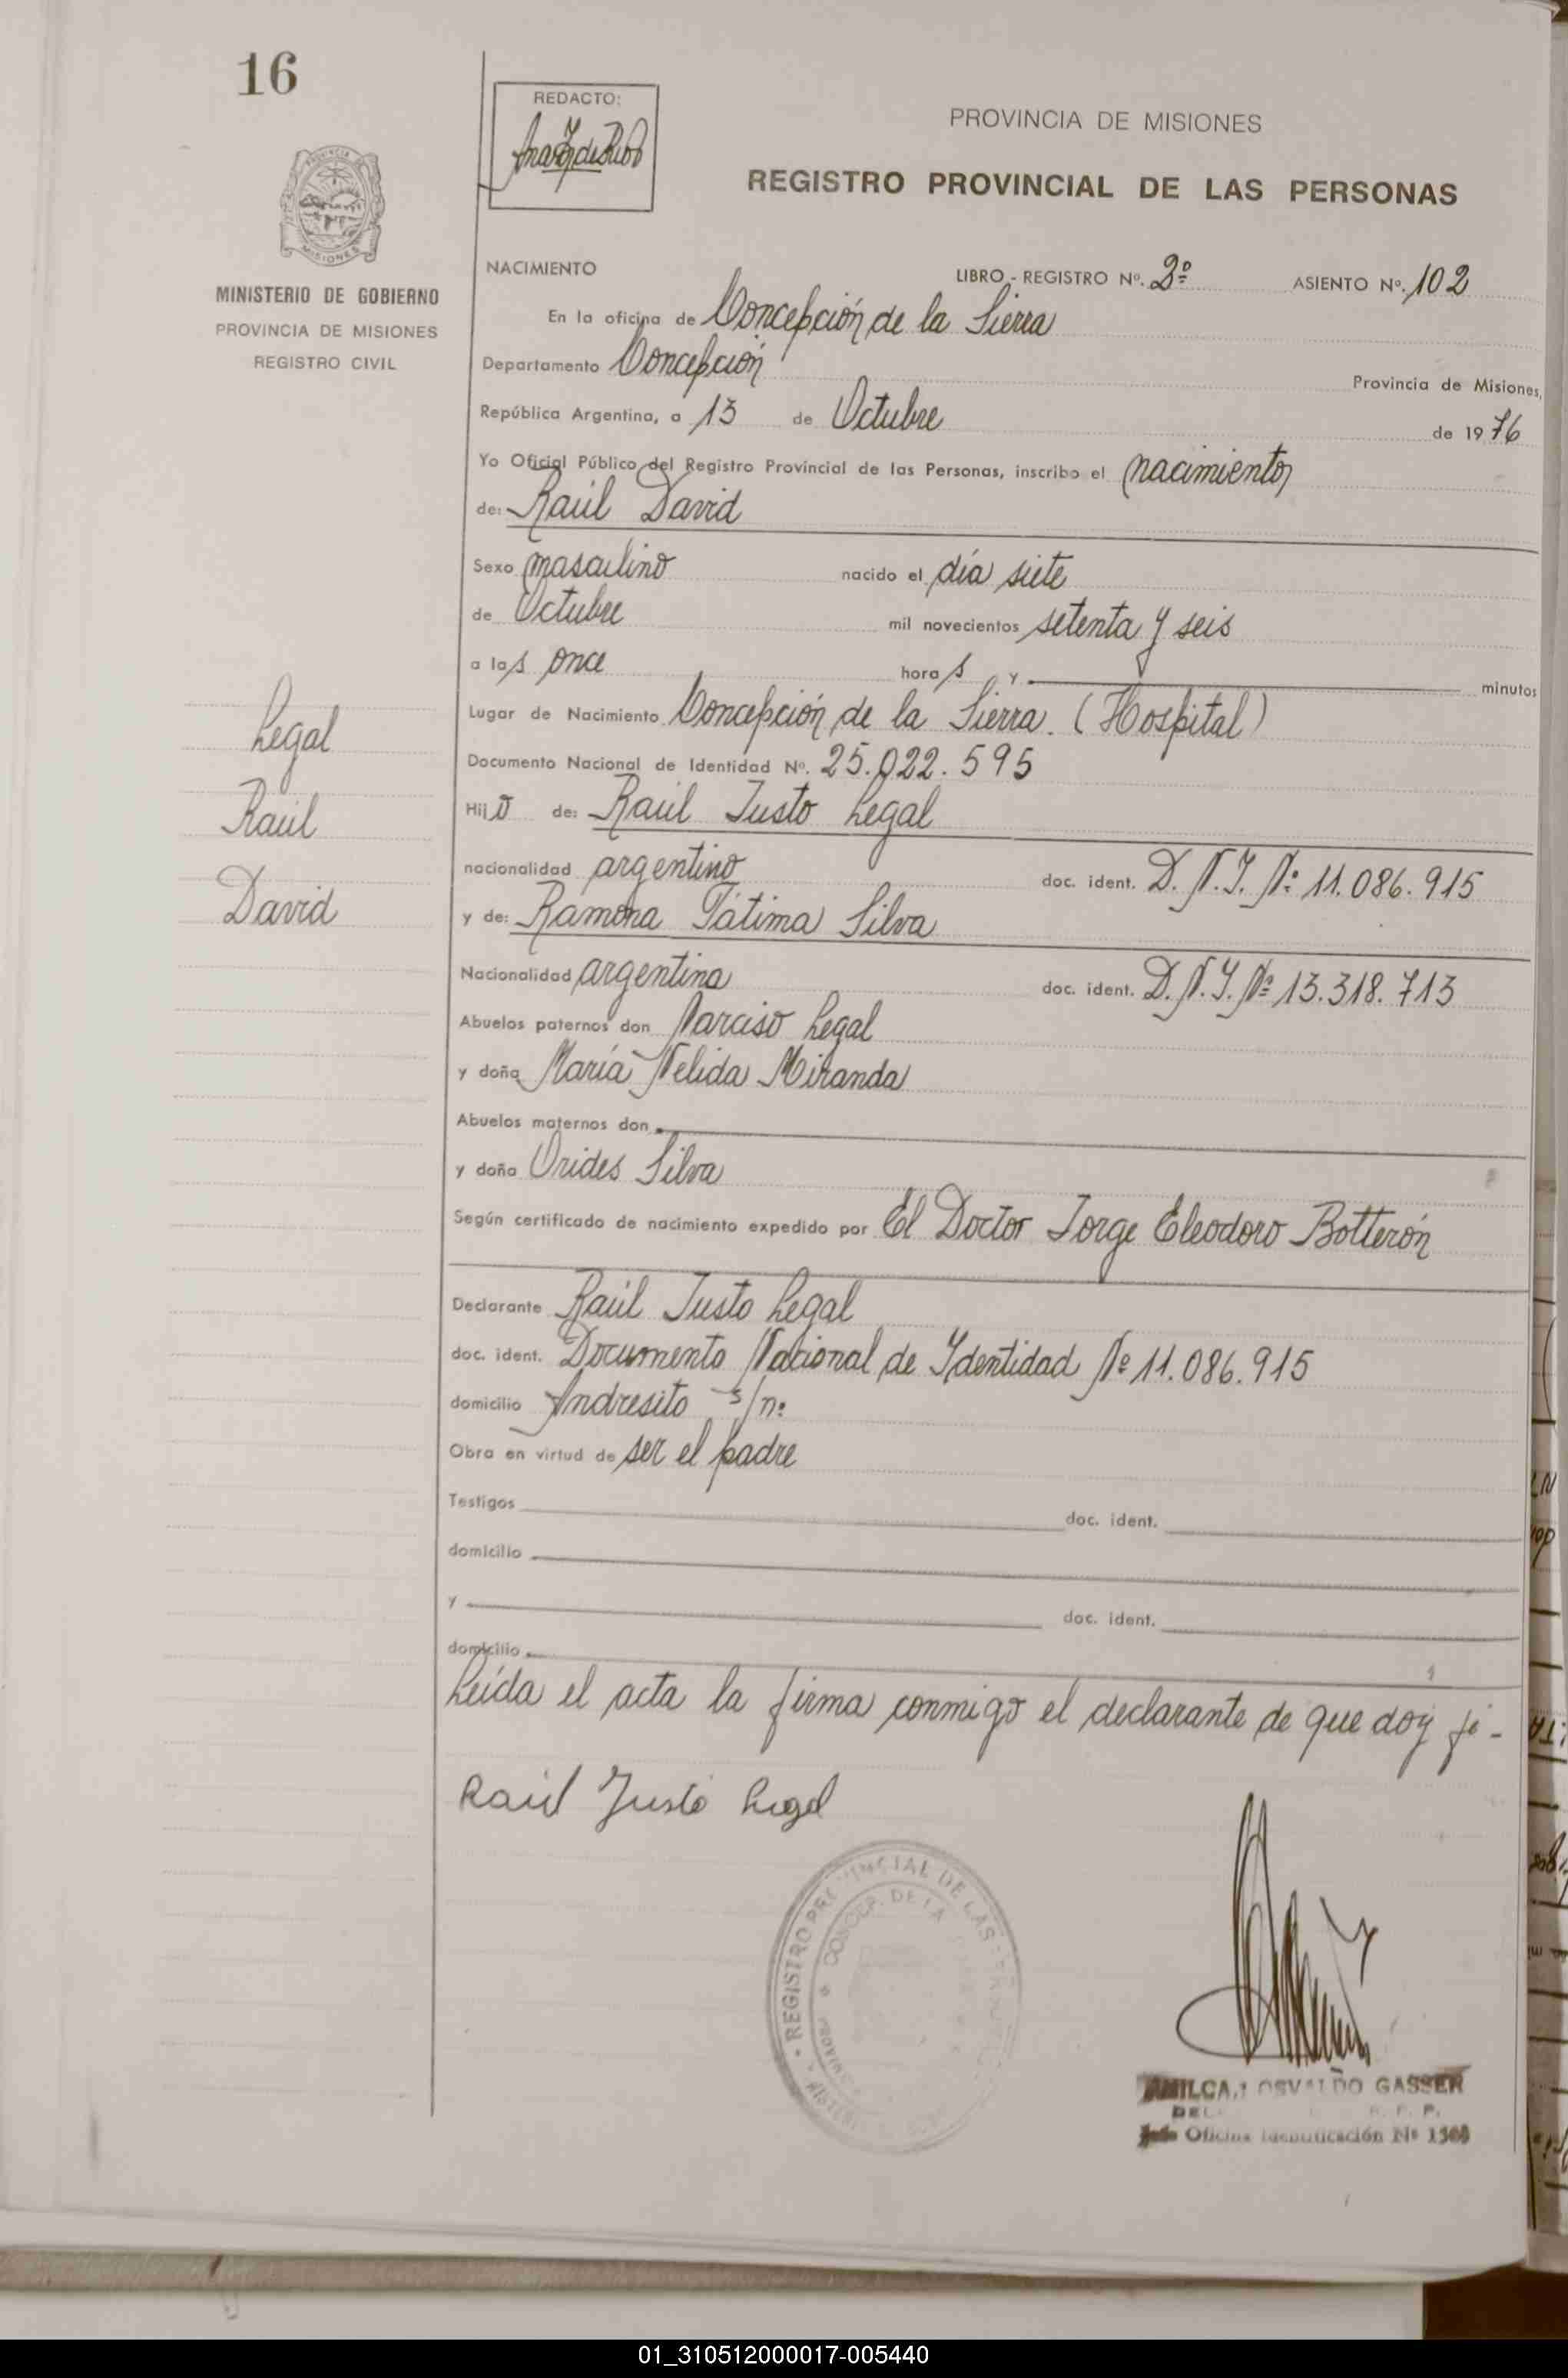 16
REDACTO:
PROVINCIA DE MISIONES
REGISTRO PROVINCIAL DE LAS PERSONAS
MISIONES
MINISTERIO DE GOBIERNO
PROVINCIA DE MISIONES
REGISTRO CIVIL
NACIMIENTO LIBRO - REGISTRO Nº. 2º ASIENTO Nº. 102
En la oficina de Concepción de la Sierra
Departamento Concepción Provincia de Misiones,
República Argentina, a 13 de Octubre de 1976
Yo Oficial Público del Registro Provincial de las Personas, inscribo el nacimiento
de: Raúl David
Sexo masculino nacido el día siete
de Octubre mil novecientos setenta y seis
a las once horas y minutos
Lugar de Nacimiento Concepción de la Sierra. (Hospital)
Documento Nacional de Identidad Nº. 25.022.595
Legal
Raúl
David
Hijo de: Raúl Justo Legal
nacionalidad argentino doc. ident. D.N.I. Nº 11.086.915
y de: Ramona Fátima Silva
Nacionalidad argentina doc. ident. D.N.I. Nº 13.318.713
Abuelos paternos don Narciso Legal
y doña María Nelida Miranda
Abuelos maternos don
y doña Orides Silva
Según certificado de nacimiento expedido por El Doctor Jorge Eleodoro Botterón
Declarante Raúl Justo Legal
doc. ident. Documento Nacional de Identidad Nº 11.086.915
domicilio Andresito s/nº
Obra en virtud de ser el padre
Testigos doc. ident.
domicilio
y doc. ident.
domicilio
Leída el acta la firma conmigo el declarante de que doy fé-
Raúl Justo Legal
REGISTRO PROVINCIAL DE LAS
CONCEP. DE LA
AMILCAR OSVALDO GASSER
R. P. P.
Jefe Oficina Identificación Nº 1508
01_310512000017-005440